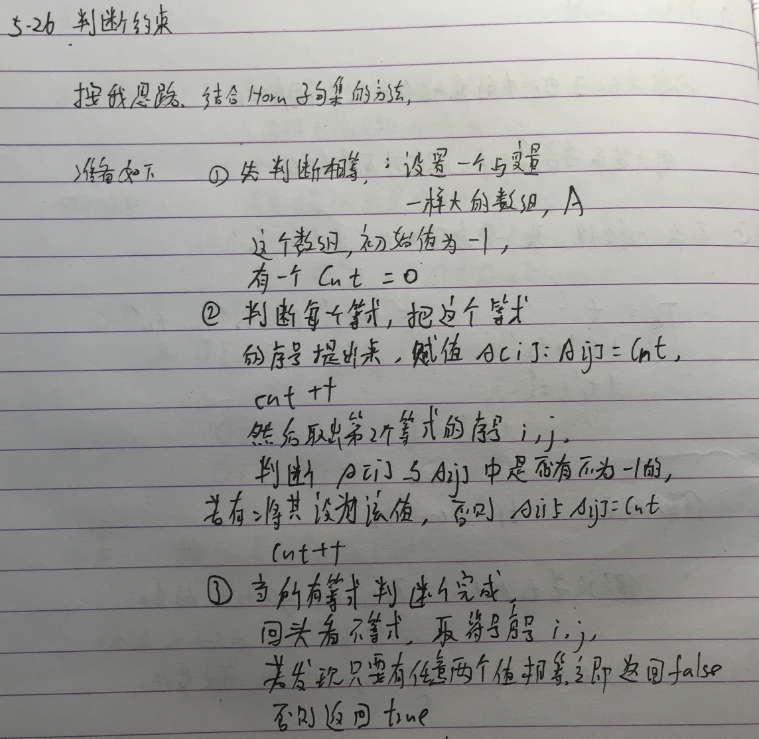 5-26 判断约束
按我思路、结合Horn子句集的方法,
准备如下 ① 先判断相等,：设置一个与变量
一样大的数组, A
这个数组, 初始值为-1,
有一个 Cnt = 0
② 判断每个等式, 把这个等式
的序号提出来, 赋值 A[i]=A[j]=Cnt,
cnt ++
然后取出第2个等式的序号 i,j,
判断 A[i]与A[j]中是否有不为-1的,
若有:将其设为该值, 否则 A[i]与A[j]=Cnt
Cnt++
③ 当所有等式判断完成,
回头看不等式, 取符号序号 i,j,
若发现只要有任意两个值相等,立即返回false
否则返回 true